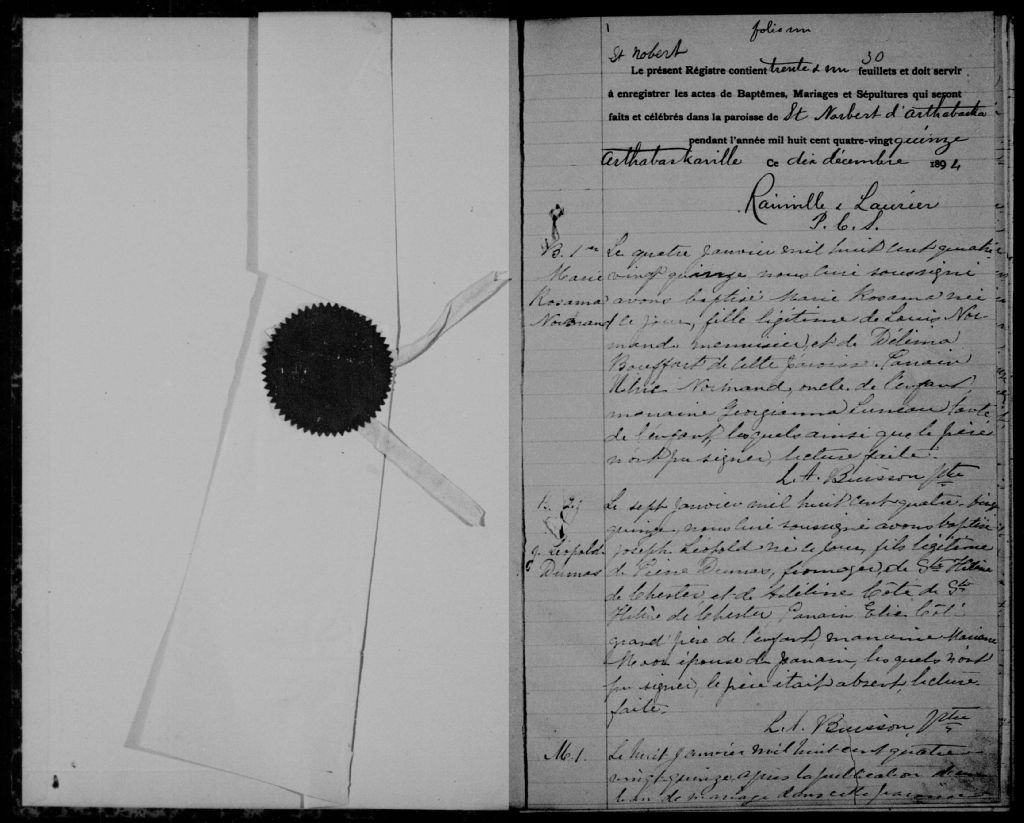 folio un
1
St Nobert
Le présent Régistre contient trente & un 30 feuillets et doit servir
à enregistrer les actes de Baptêmes, Mariages et Sépultures qui seront
faits et célébrés dans la paroisse de St Norbert d'Arthabaska
pendant l'année mil huit cent quatre-vingt quinze
Arthabaskaville Ce dix décembre 1894
Rainville & Laurier
P. C. S.
B. 1er
Marie
Rosanna
Normand
Le quatre Janvier mil huit cent quatre
vingt quinze nous curé soussigné
avons baptisé Marie Rosanna née
ce jour, fille légitime de Louis Nor-
mand menuisier, et de Délima
Bouffart de cette paroisse. Parrain
Normand, oncle de l'enfant,
marraine Georgianna Luneau tante
de l'enfant, lesquels ainsi que le père
n'ont pu signer, lecture faite.
L. A. Buisson Ptre
B. 2
J. Léopold
Dumas
Le sept Janvier mil huit cent quatre-vingt
quinze nous curé soussigné avons baptisé
Joseph Léopold né ce jour, fils légitime
de Pierre Dumas, fromager, de Ste Hélène
de Chester et de Adéline Côté de Ste
Hélène de Chester Parrain Elie Côté
grand père de l'enfant, marraine
épouse du parrain, lesquels n'ont
pu signer, le père était absent, lecture
faite.
L. A. Buisson, Ptre
M. 1.
Le huit Janvier mil huit cent quatre
vingt-quinze, après la publication
ban de mariage dans cette